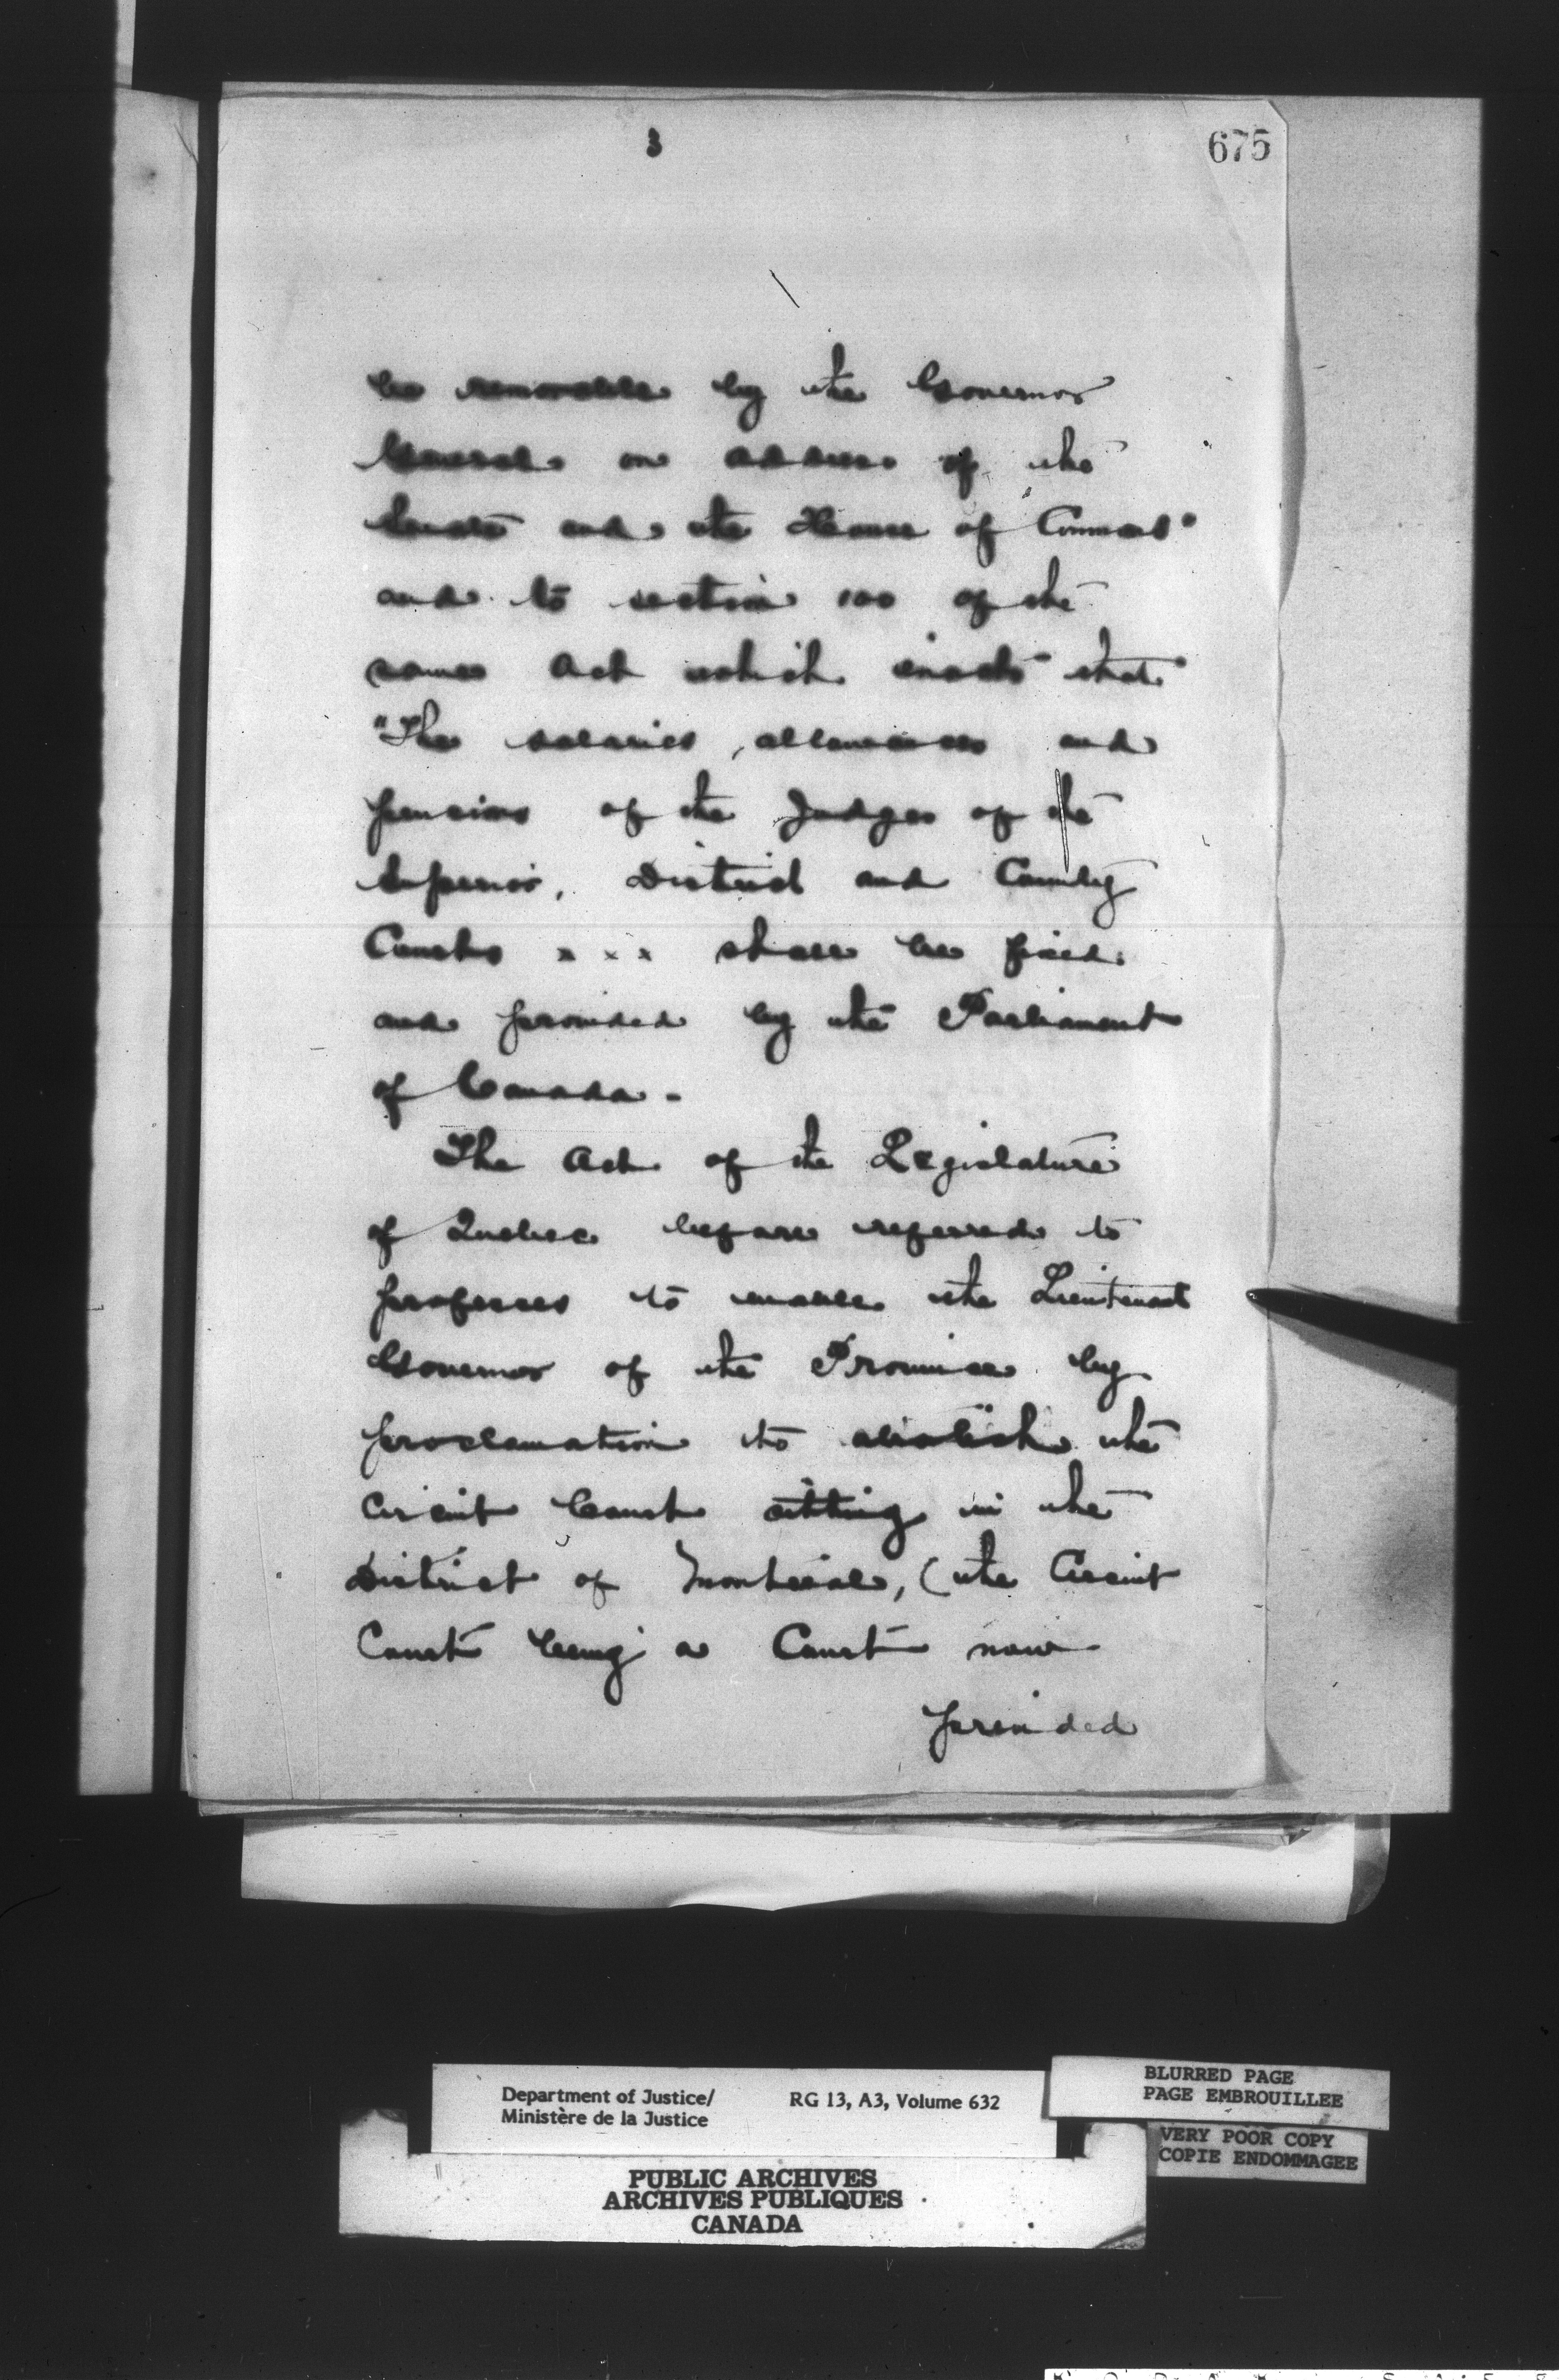 3
675
be removable by the Governor
General on address of the
Senate and the House of Commons"
and to section 100 of the
same Act which enacts that
"The salaries, allowances and
pensions of the Judges of the
Superior, District and County
Courts x x x shall be fixed
and provided by the Parliament
of Canada.
The Act of the Legislature
of Quebec before referred to
proposes to enable the Lieutenant
Governor of the Province by
proclamation to abolish the
Circuit Court sitting in the
District of Montreal, (the Circuit
Court being a Court now
provided
Department of Justice/
Ministère de la Justice
RG 13, A3, Volume 632
BLURRED PAGE
PAGE EMBROUILLEE
VERY POOR COPY
COPIE ENDOMMAGEE
PUBLIC ARCHIVES
ARCHIVES PUBLIQUES
CANADA